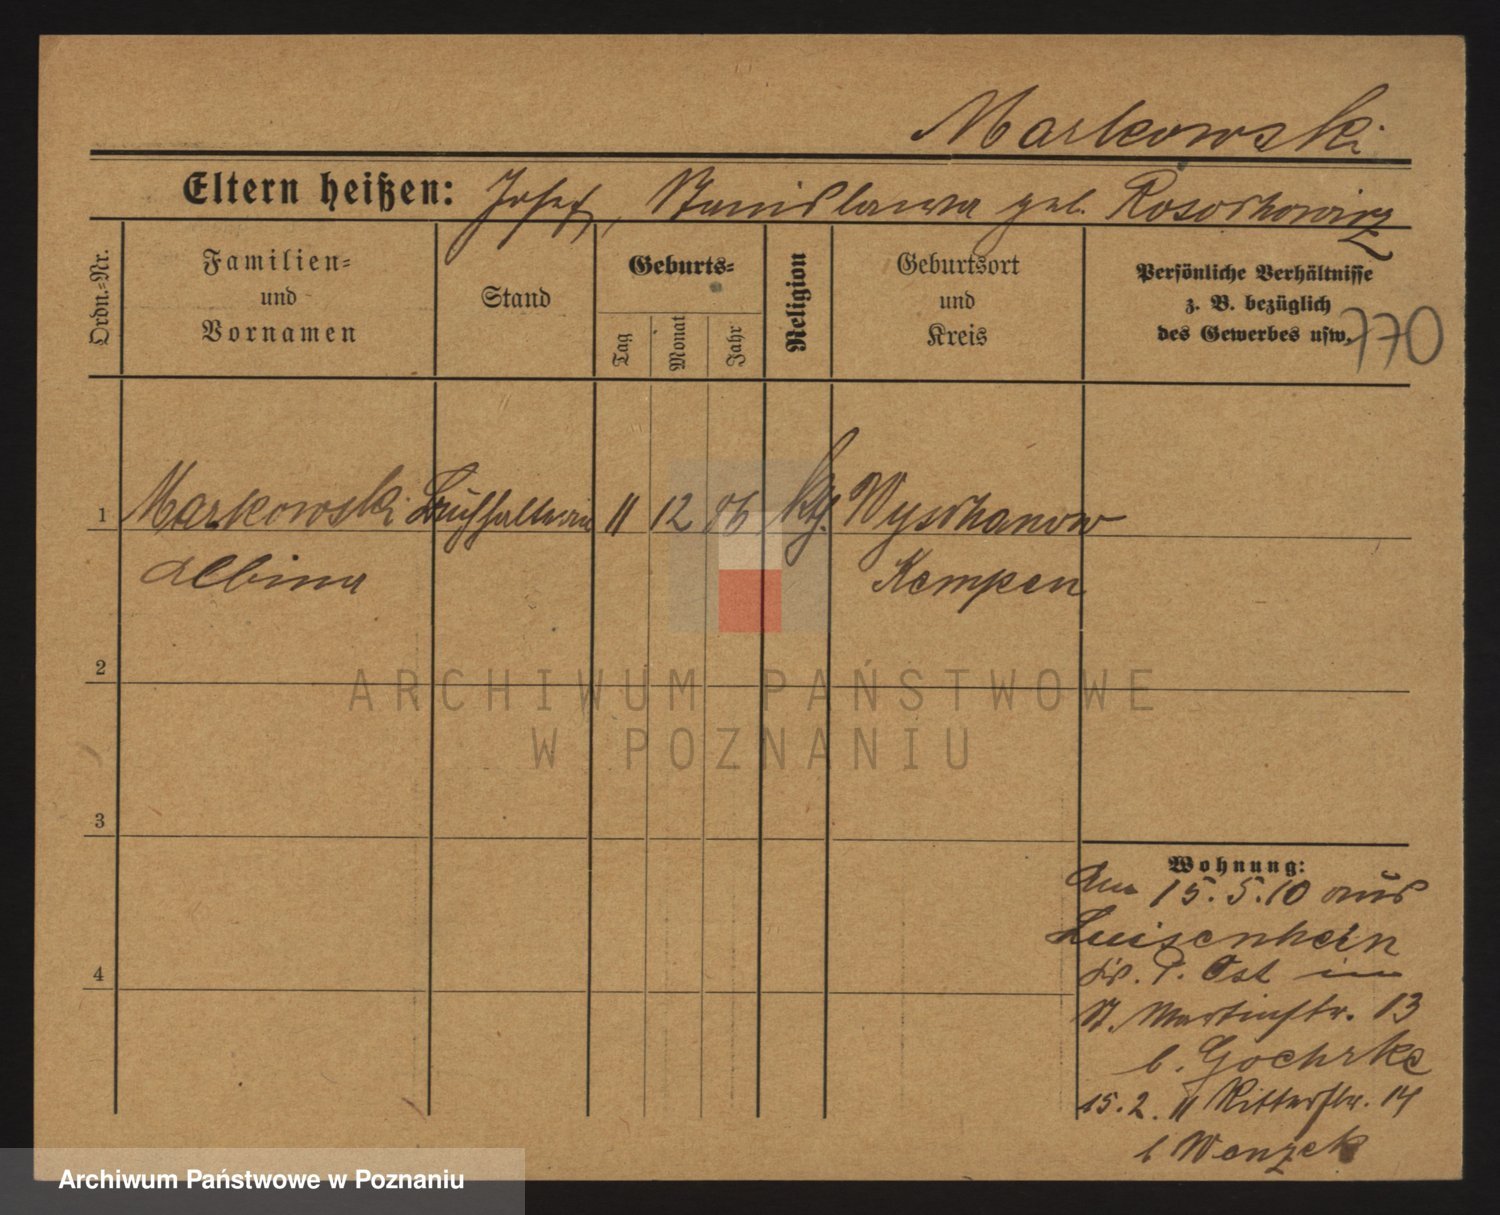 Markowski
Eltern heißen: Josef, Stanislawa geb. Rosochowicz
Ordn.-Nr.
Familien-
und
Vornamen
Stand
Geburts-
Tag
Monat
Jahr
Religion
Geburtsort
und
Kreis
Persönliche Verhältnisse
z. B. bezüglich
des Gewerbes usw.
770
1 Markowski Buchhalterin 11 12 86 kth. Wyschanow
Albina Kempen
2
3
4
ARCHIWUM PAŃSTWOWE
W POZNANIU
Wohnung:
Am 15.5.10 aus
Luisenhein
Kr. P. Ost in
St. Martinstr. 13
b. Goehrke
15.2.11 Ritterstr. 14
b Wenzek
Archiwum Państwowe w Poznaniu